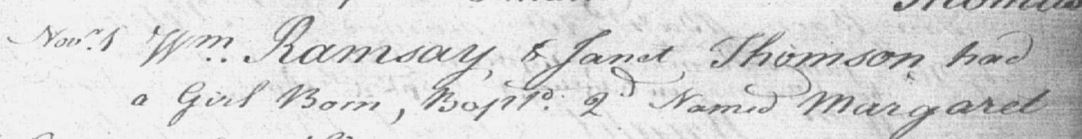 Thomas
Novr. 1 Wm. Ramsay & Janet Thomson had
a Girl Born, Baptd. 2d Named Margaret